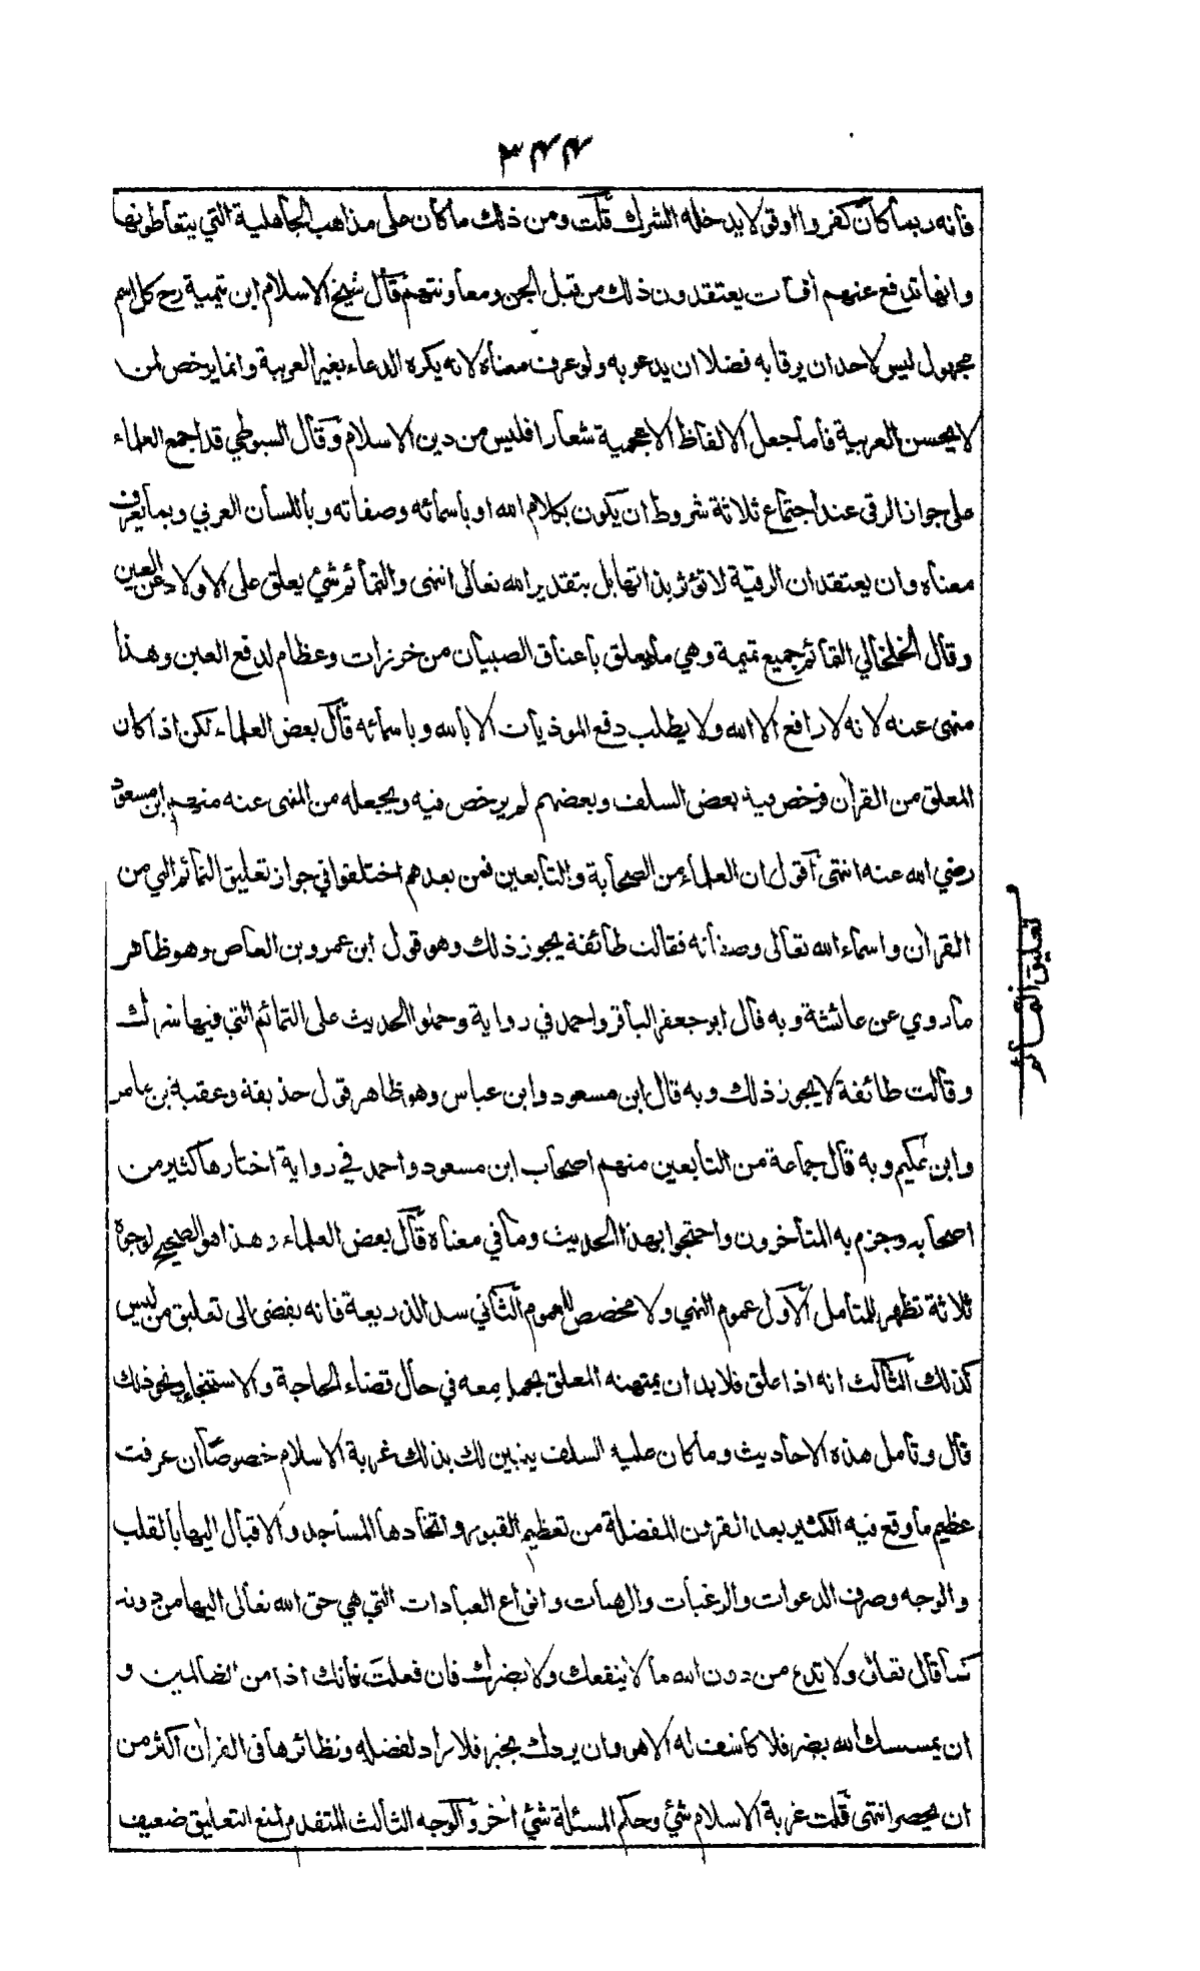 ٣٤٤
فانه ربما كان كفروا اوقى لا يدخله الشرك قلت ومن ذلك ما كان على مذاهب الجاهلية التي يتعاطونها
وانها تدفع عنهم افات يعتقدون ذلك من قبل الجن ومعاونتهم قال شيخ الاسلام ابن تيمية رح كل اسم
مجهول ليس لاحد ان يرقا به فضلا ان يدعو به ولو عرف معناه لانه يكره الدعاء بغير العربية وانما يرخص لمن
لا يحسن العربية فاما جعل الالفاظ الاعجمية شعارا فليس من دين الاسلام وقال السيوطي قد اجمع العلماء
على جواز الرقى عند اجتماع ثلاثة شروط ان يكون بكلام الله او باسمائه وصفاته وباللسان العربي وبما يعرف
معناه وان يعتقد ان الرقية لا تؤثر بذاتها بل بتقدير الله تعالى انتهى والتمائم شئ يعلق على الاولاد عن العين
وقال الخلخالي التمائم جميع تميمة وهي ما يعلق باعناق الصبيان من خرزات وعظام لدفع العين وهذا
منهى عنه لانه لا رافع الا الله ولا يطلب دفع الموذيات الا بالله وباسمائه قال بعض العلماء لكن اذا كان
المعلق من القران فرخص فيه بعض السلف وبعضهم لم يرخص فيه ويجعله من المنهى عنه منهم ابن مسعود
رضي الله عنه انتهى اقول ان العلماء من الصحابة والتابعين فمن بعدهم اختلفوا في جواز تعليق التمائم التي من
القران واسماء الله تعالى وصفاته فقالت طائفة يجوز ذلك وهو قول ابن عمرو بن العاص وهو ظاهر
ما روي عن عائشة وبه قال ابو جعفر الباقر واحمد في رواية وحملوا الحديث على التمائم التي فيها شرك
وقالت طائفة لا يجوز ذلك وبه قال ابن مسعود وابن عباس وهو ظاهر قول حذيفة وعقبة بن عامر
وابن عكيم وبه قال جماعة من التابعين منهم اصحاب ابن مسعود واحمد في رواية اختارها كثير من
اصحابه وجزم به المتأخرون واحتجوا بهذا الحديث وما في معناه قال بعض العلماء وهذا هو الصحيح لوجوه
ثلاثة تظهر للمتأمل الاول عموم النهي ولا مخصص للعموم الثاني سد الذريعة فانه يفضى الى تعليق من ليس
كذلك الثالث انه اذا علق فلا بد ان يمتهنه المعلق بحمله معه في حال قضاء الحاجة والاستنجاء ونحو ذلك
قال وتأمل هذه الاحاديث وما كان عليه السلف يتبين لك بذلك غربة الاسلام خصوصا ان عرفت
عظيم ما وقع فيه الكثير بعد القرون المفضلة من تعظيم القبور واتخاذها المساجد والاقبال اليها بالقلب
والوجه وصرف الدعوات والرغبات والرهبات وانواع العبادات التي هي حق الله تعالى اليها من دونه
كما قال تعالى ولا تدع من دون الله ما لا ينفعك ولا يضرك فان فعلت فانك اذا من الظالمين و
ان يمسسك الله بضر فلا كاشف له الا هو وان يردك بخير فلا راد لفضله ونظائرها في القران اكثر من
ان يحصر انتهى قلت غربة الاسلام شئ وحكم المسئلة شئ اخر والوجه الثالث المتقدم لمنع التعليق ضعيف
تعليق التمائم